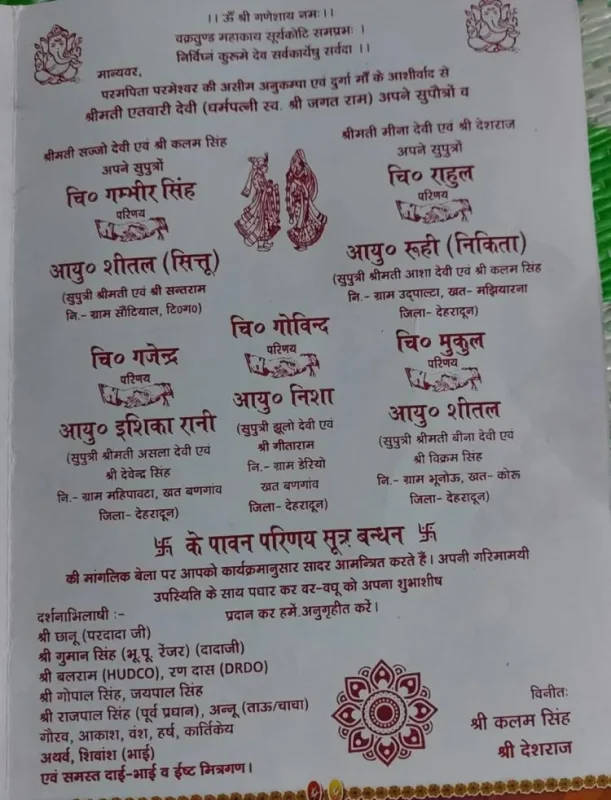 ।। ॐ श्री गणेशाय नमः।।
वक्रतुण्ड महाकाय सूर्यकोटि समप्रभः ।
निर्विघ्नं कुरूमे देव सर्वकार्येषु सर्वदा ।।
मान्यवर,
परमपिता परमेश्वर की असीम अनुकम्पा एवं दुर्गा माँ के आशीर्वाद से
श्रीमती एतवारी देवी (धर्मपत्नी स्व. श्री जगत राम) अपने सुपौत्रों व
श्रीमती सज्जो देवी एवं श्री कलम सिंह
अपने सुपुत्रों
चि० गम्भीर सिंह
परिणय
आयु० शीतल (सित्तू)
(सुपुत्री श्रीमती एवं श्री सन्तराम
नि.- ग्राम सौटियाल, टि०ग०)
श्रीमती मीना देवी एवं श्री देशराज
अपने सुपुत्रों
चि० राहुल
परिणय
आयु० रूही (निकिता)
(सुपुत्री श्रीमती आशा देवी एवं श्री कलम सिंह
नि.- ग्राम उद्पाल्टा, खत- मझियारना
जिला- देहरादून)
चि० गजेन्द्र
परिणय
आयु० इशिका रानी
(सुपुत्री श्रीमती असला देवी एवं
श्री देवेन्द्र सिंह
नि.- ग्राम महिपावटा, खत बणगांव
जिला- देहरादून)
चि० गोविन्द
परिणय
आयु० निशा
(सुपुत्री झूलो देवी एवं
श्री गीताराम
नि.- ग्राम डेरियो
खत बणगांव
जिला- देहरादून)
चि० मुकुल
परिणय
आयु० शीतल
(सुपुत्री श्रीमती बीना देवी एवं
श्री विक्रम सिंह
नि.- ग्राम भूनोऊ, खत- कोरू
जिला- देहरादून)
卐 के पावन परिणय सूत्र बन्धन 卐
की मांगलिक बेला पर आपको कार्यक्रमानुसार सादर आमन्त्रित करते हैं। अपनी गरिमामयी
उपस्थिति के साथ पधार कर वर-वधू को अपना शुभाशीष
प्रदान कर हमें अनुगृहीत करें।
दर्शनाभिलाषी :-
श्री छानू (परदादा जी)
श्री गुमान सिंह (भू.पू. रेंजर) (दादाजी)
श्री बलराम (HUDCO), रण दास (DRDO)
श्री गोपाल सिंह, जयपाल सिंह
श्री राजपाल सिंह (पूर्व प्रधान), अन्नू (ताऊ/चाचा)
गौरव, आकाश, वंश, हर्ष, कार्तिकेय
अथर्व, शिवांश (भाई)
एवं समस्त दाई-भाई व ईष्ट मित्रगण।
विनीतः
श्री कलम सिंह
श्री देशराज